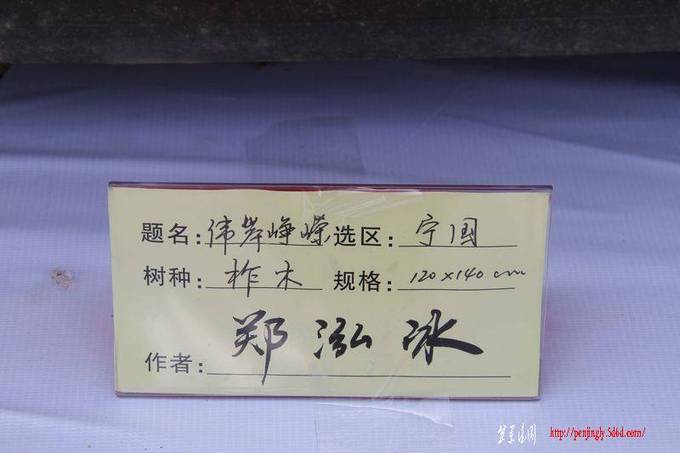 题名: 伟岸峥嵘 选区: 宁国
树种: 柞木 规格: 120×140cm
作者: 郑泓冰
http://penjingly.5d6d.com/